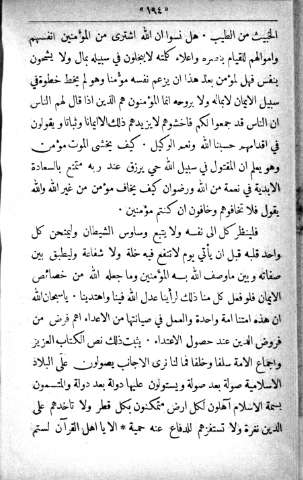 «١٩٤»
الخبيث من الطيب . هل نسوا ان الله اشترى من المؤمنين انفسهم
واموالهم للقيام بنصره واعلاء كلمته لايبخلون في سبيله بمال ولا يشحون
بنفس فهل لمؤمن بعد هذا ان يزعم نفسه مؤمنا وهو لم يخط خطوة في
سبيل الايمان لابماله ولا بروحه انما المؤمنون هم الذين اذا قال لهم الناس
ان الناس قد جمعوا لكم فاخشوهم لايزيدهم ذلك الا ايمانا وثباتا ويقولون
في اقدامهم حسبنا الله ونعم الوكيل . كيف يخشى الموت مؤمن
وهو يعلم ان المقتول في سبيل الله حي يرزق عند ربه متمتع بالسعادة
الابدية في نعمة من الله ورضوان كيف يخاف مؤمن من غير الله والله
يقول فلا تخافوهم وخافون ان كنتم مؤمنين .
فلينظر كل الى نفسه ولا يتبع وساوس الشيطان وليمتحن كل
واحد قلبه قبل ان يأتي يوم لاتنفع فيه خلة ولا شفاعة وليطبق بين
صفاته وبين ماوصف الله به المؤمنين وما جعله الله من خصائص
الايمان فلو فعل كل منا ذلك لرأينا عدل الله فينا واهتدينا . ياسبحان الله
ان هذه امتنا امة واحدة والعمل في صيانتها من الاعداء اهم فرض من
فروض الدين عند حصول الاعتداء . يثبت ذلك نص الكتاب العزيز
واجماع الامة سلفا وخلفا فما لنا نرى الاجانب يصولون على البلاد
الاسلامية صولة بعد صولة ويستولون عليها دولة بعد دولة والمتسمون
بسمة الاسلام آهلون لكل ارض متمكنون بكل قطر ولا تأخذهم على
الدين نعرة ولا تستفزهم للدفاع عنه حمية * الا يا اهل القرآن لستم